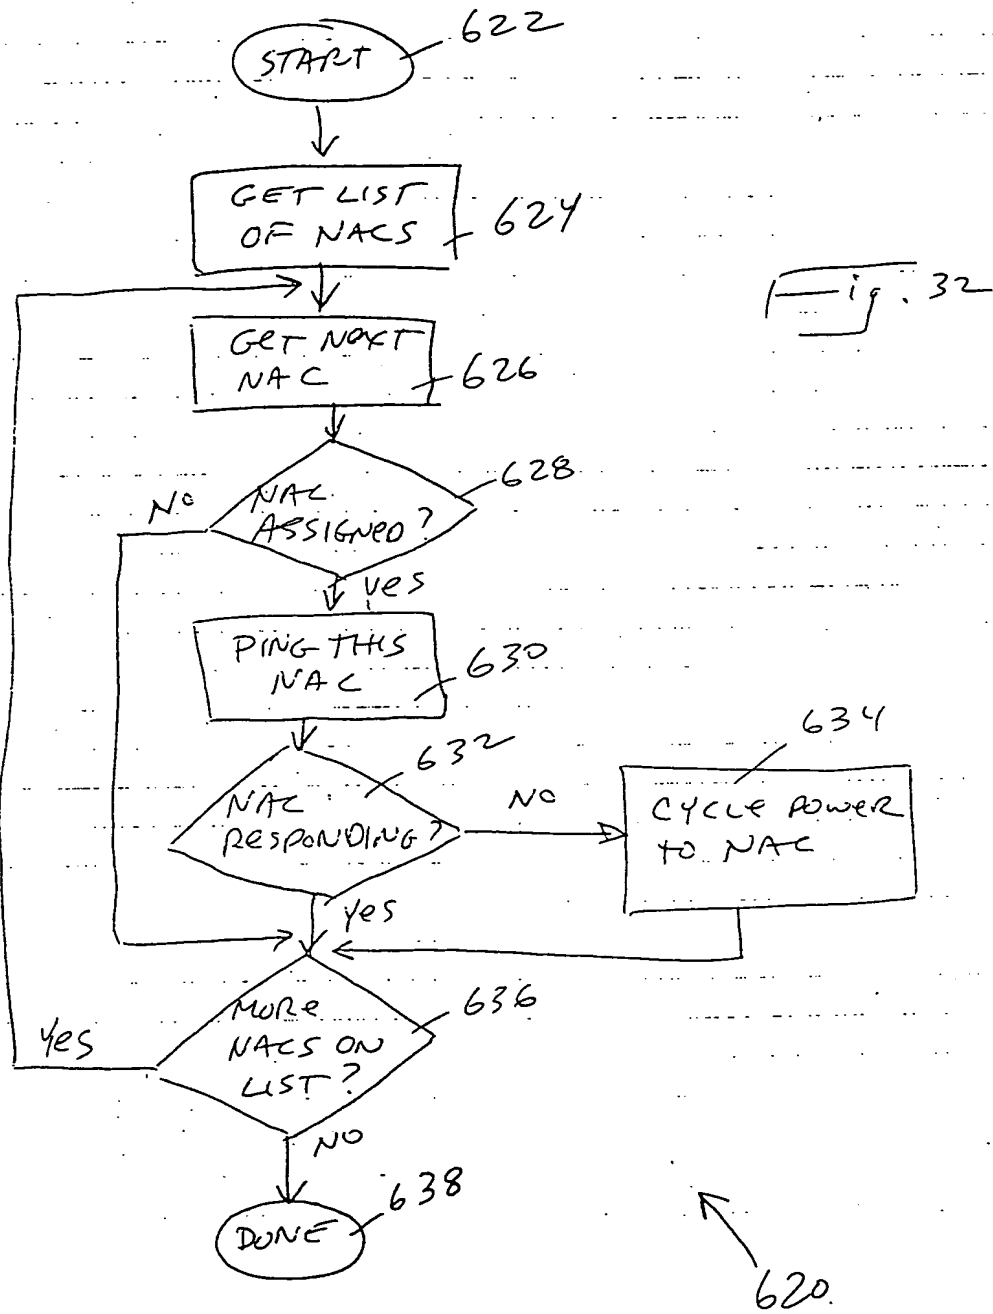 START
622
GET LIST
OF NACS
624
Fig. 32
GET NEXT
NAC
626
NAC
ASSIGNED?
628
NO
yes
PING THIS
NAC
630
NAC
RESPONDING?
632
NO
634
CYCLE POWER
TO NAC
yes
MORE
NACS ON
LIST?
636
yes
NO
DONE
638
620